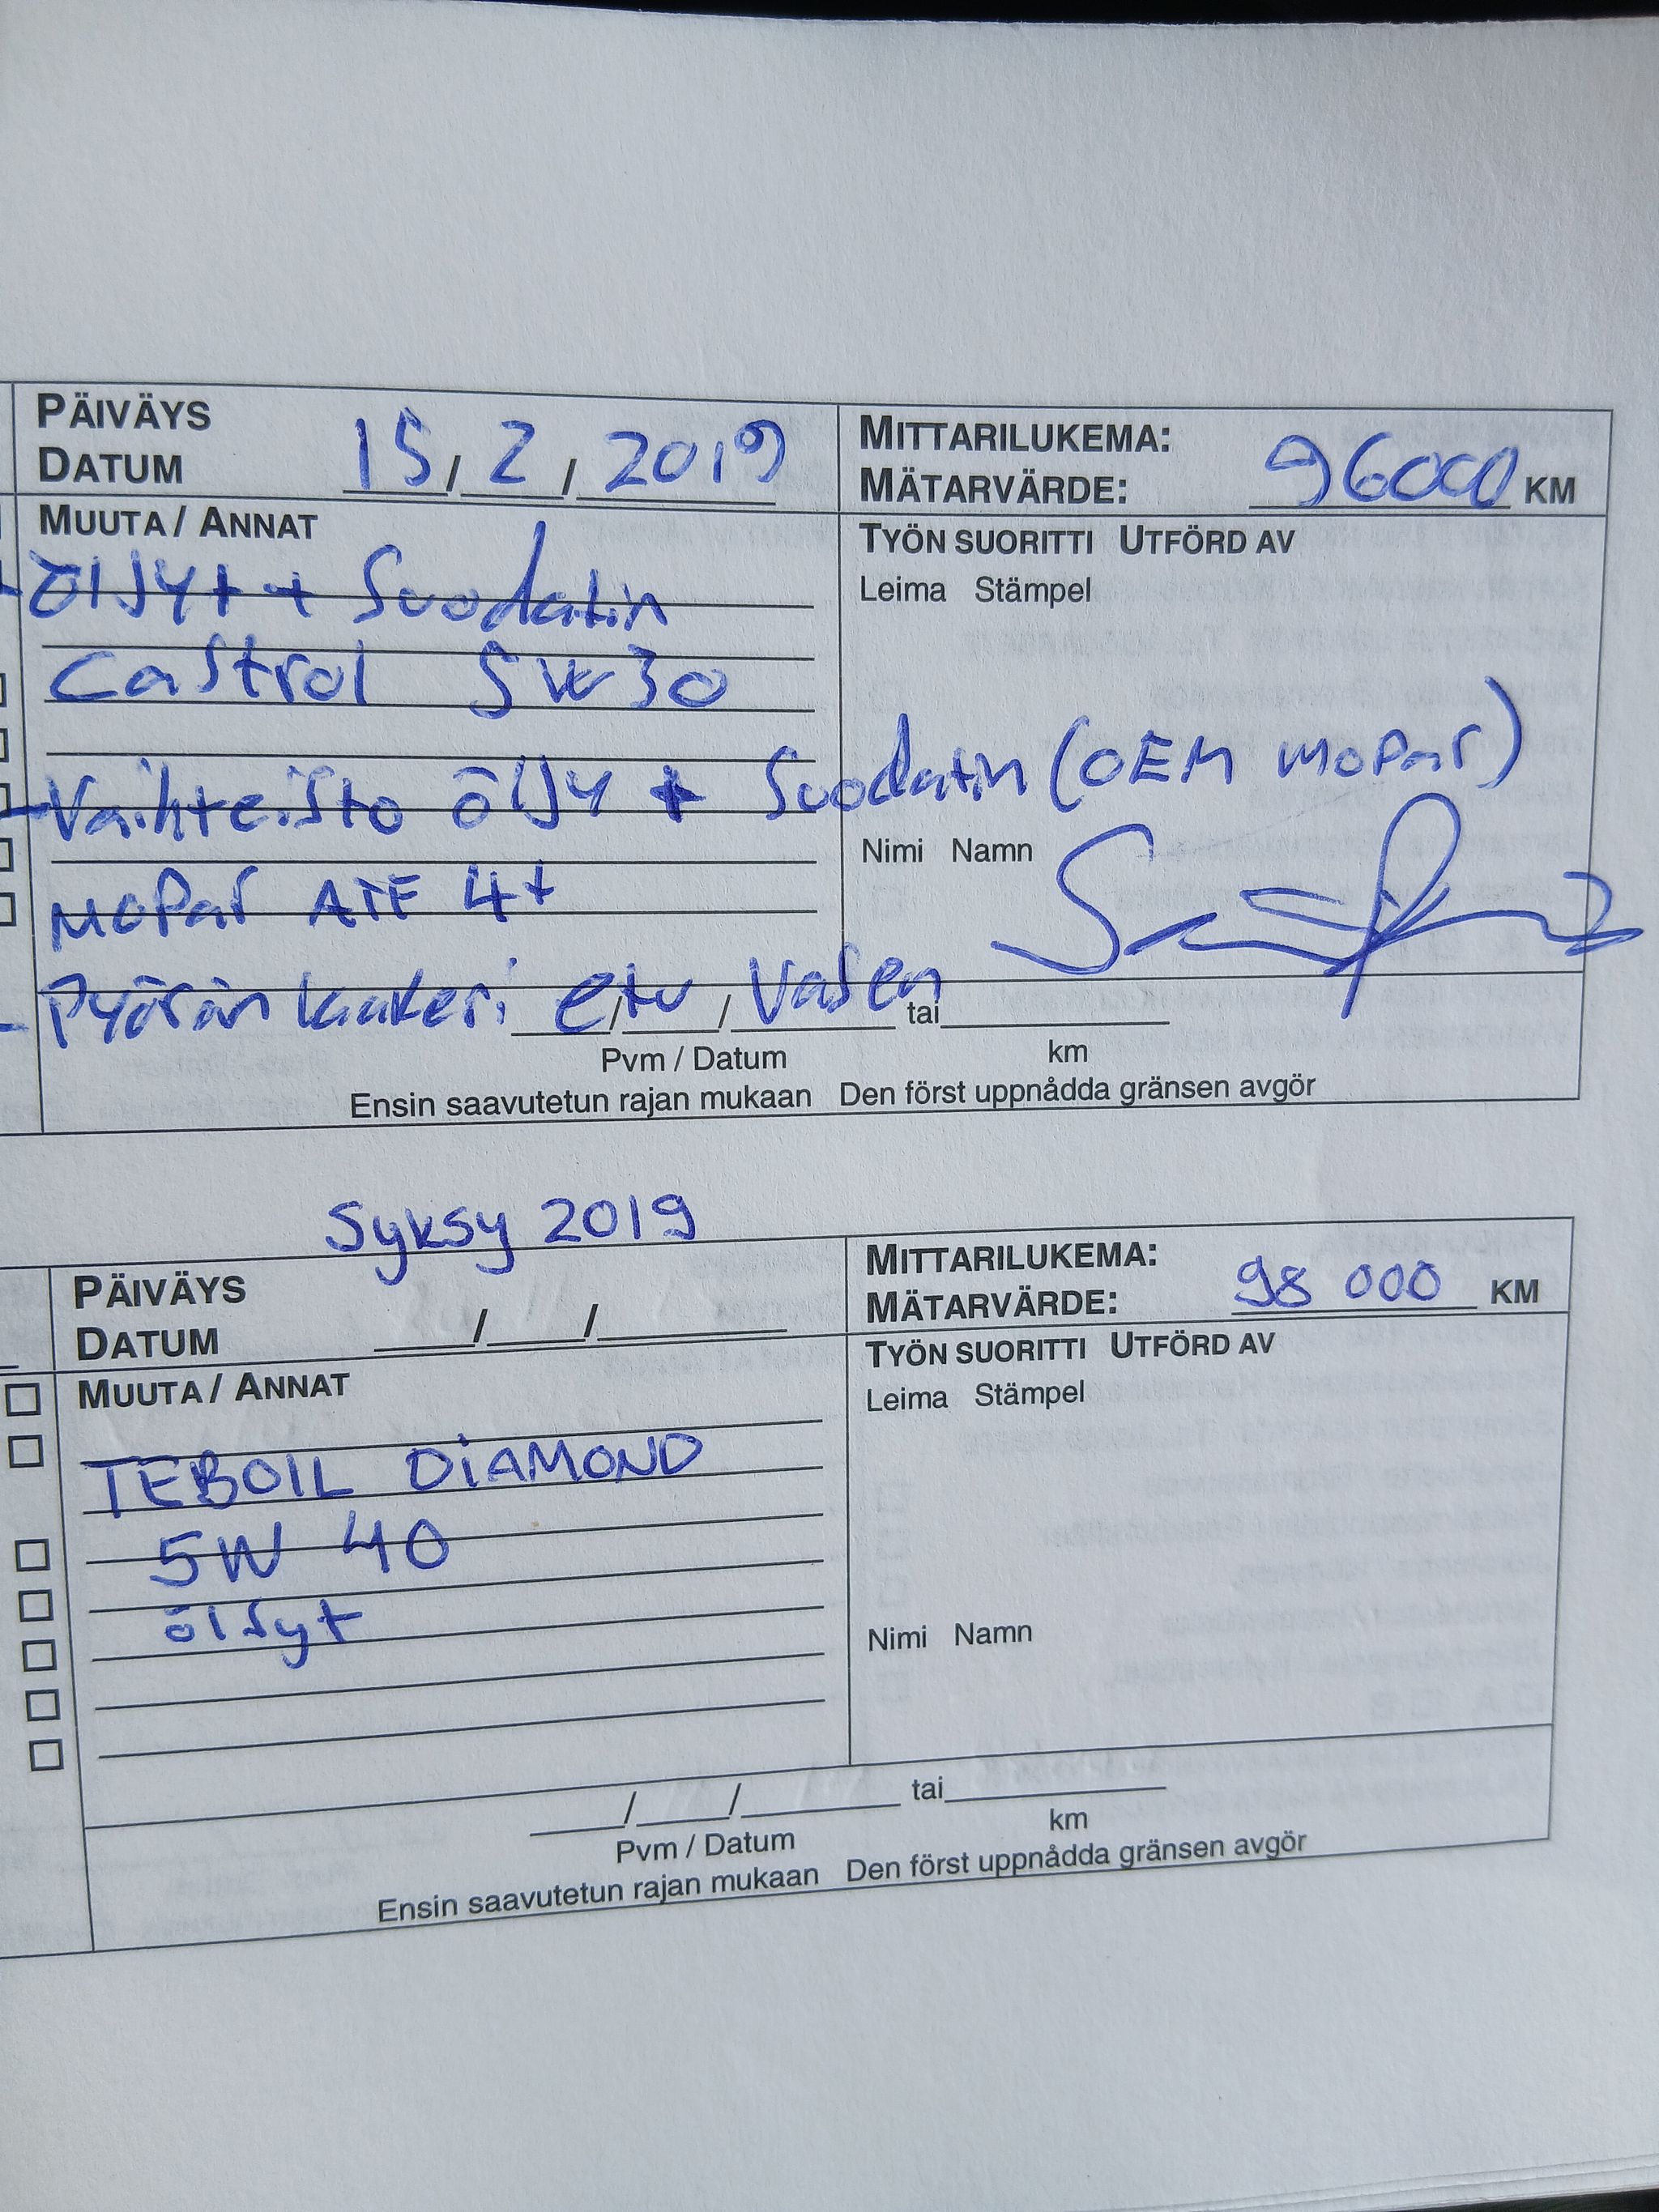 PÄIVÄYS
DATUM 15 / 2 / 2019
MITTARILUKEMA:
MÄTARVÄRDE: 96000 KM
MUUTA / ANNAT
- Öljyt + Suodatin
Castrol 5W30
- Vaihteisto öljy + Suodatin (OEM MOPAR)
MOPAR ATF 4+
- Pyörän laakeri etu vasen
TYÖN SUORITTI UTFÖRD AV
Leima Stämpel
Nimi Namn
/ / tai
Pvm / Datum km
Ensin saavutetun rajan mukaan Den först uppnådda gränsen avgör
Syksy 2019
PÄIVÄYS
DATUM / /
MITTARILUKEMA:
MÄTARVÄRDE: 98 000 KM
MUUTA / ANNAT
TEBOIL DIAMOND
5W 40
öljyt
TYÖN SUORITTI UTFÖRD AV
Leima Stämpel
Nimi Namn
/ / tai
Pvm / Datum km
Ensin saavutetun rajan mukaan Den först uppnådda gränsen avgör